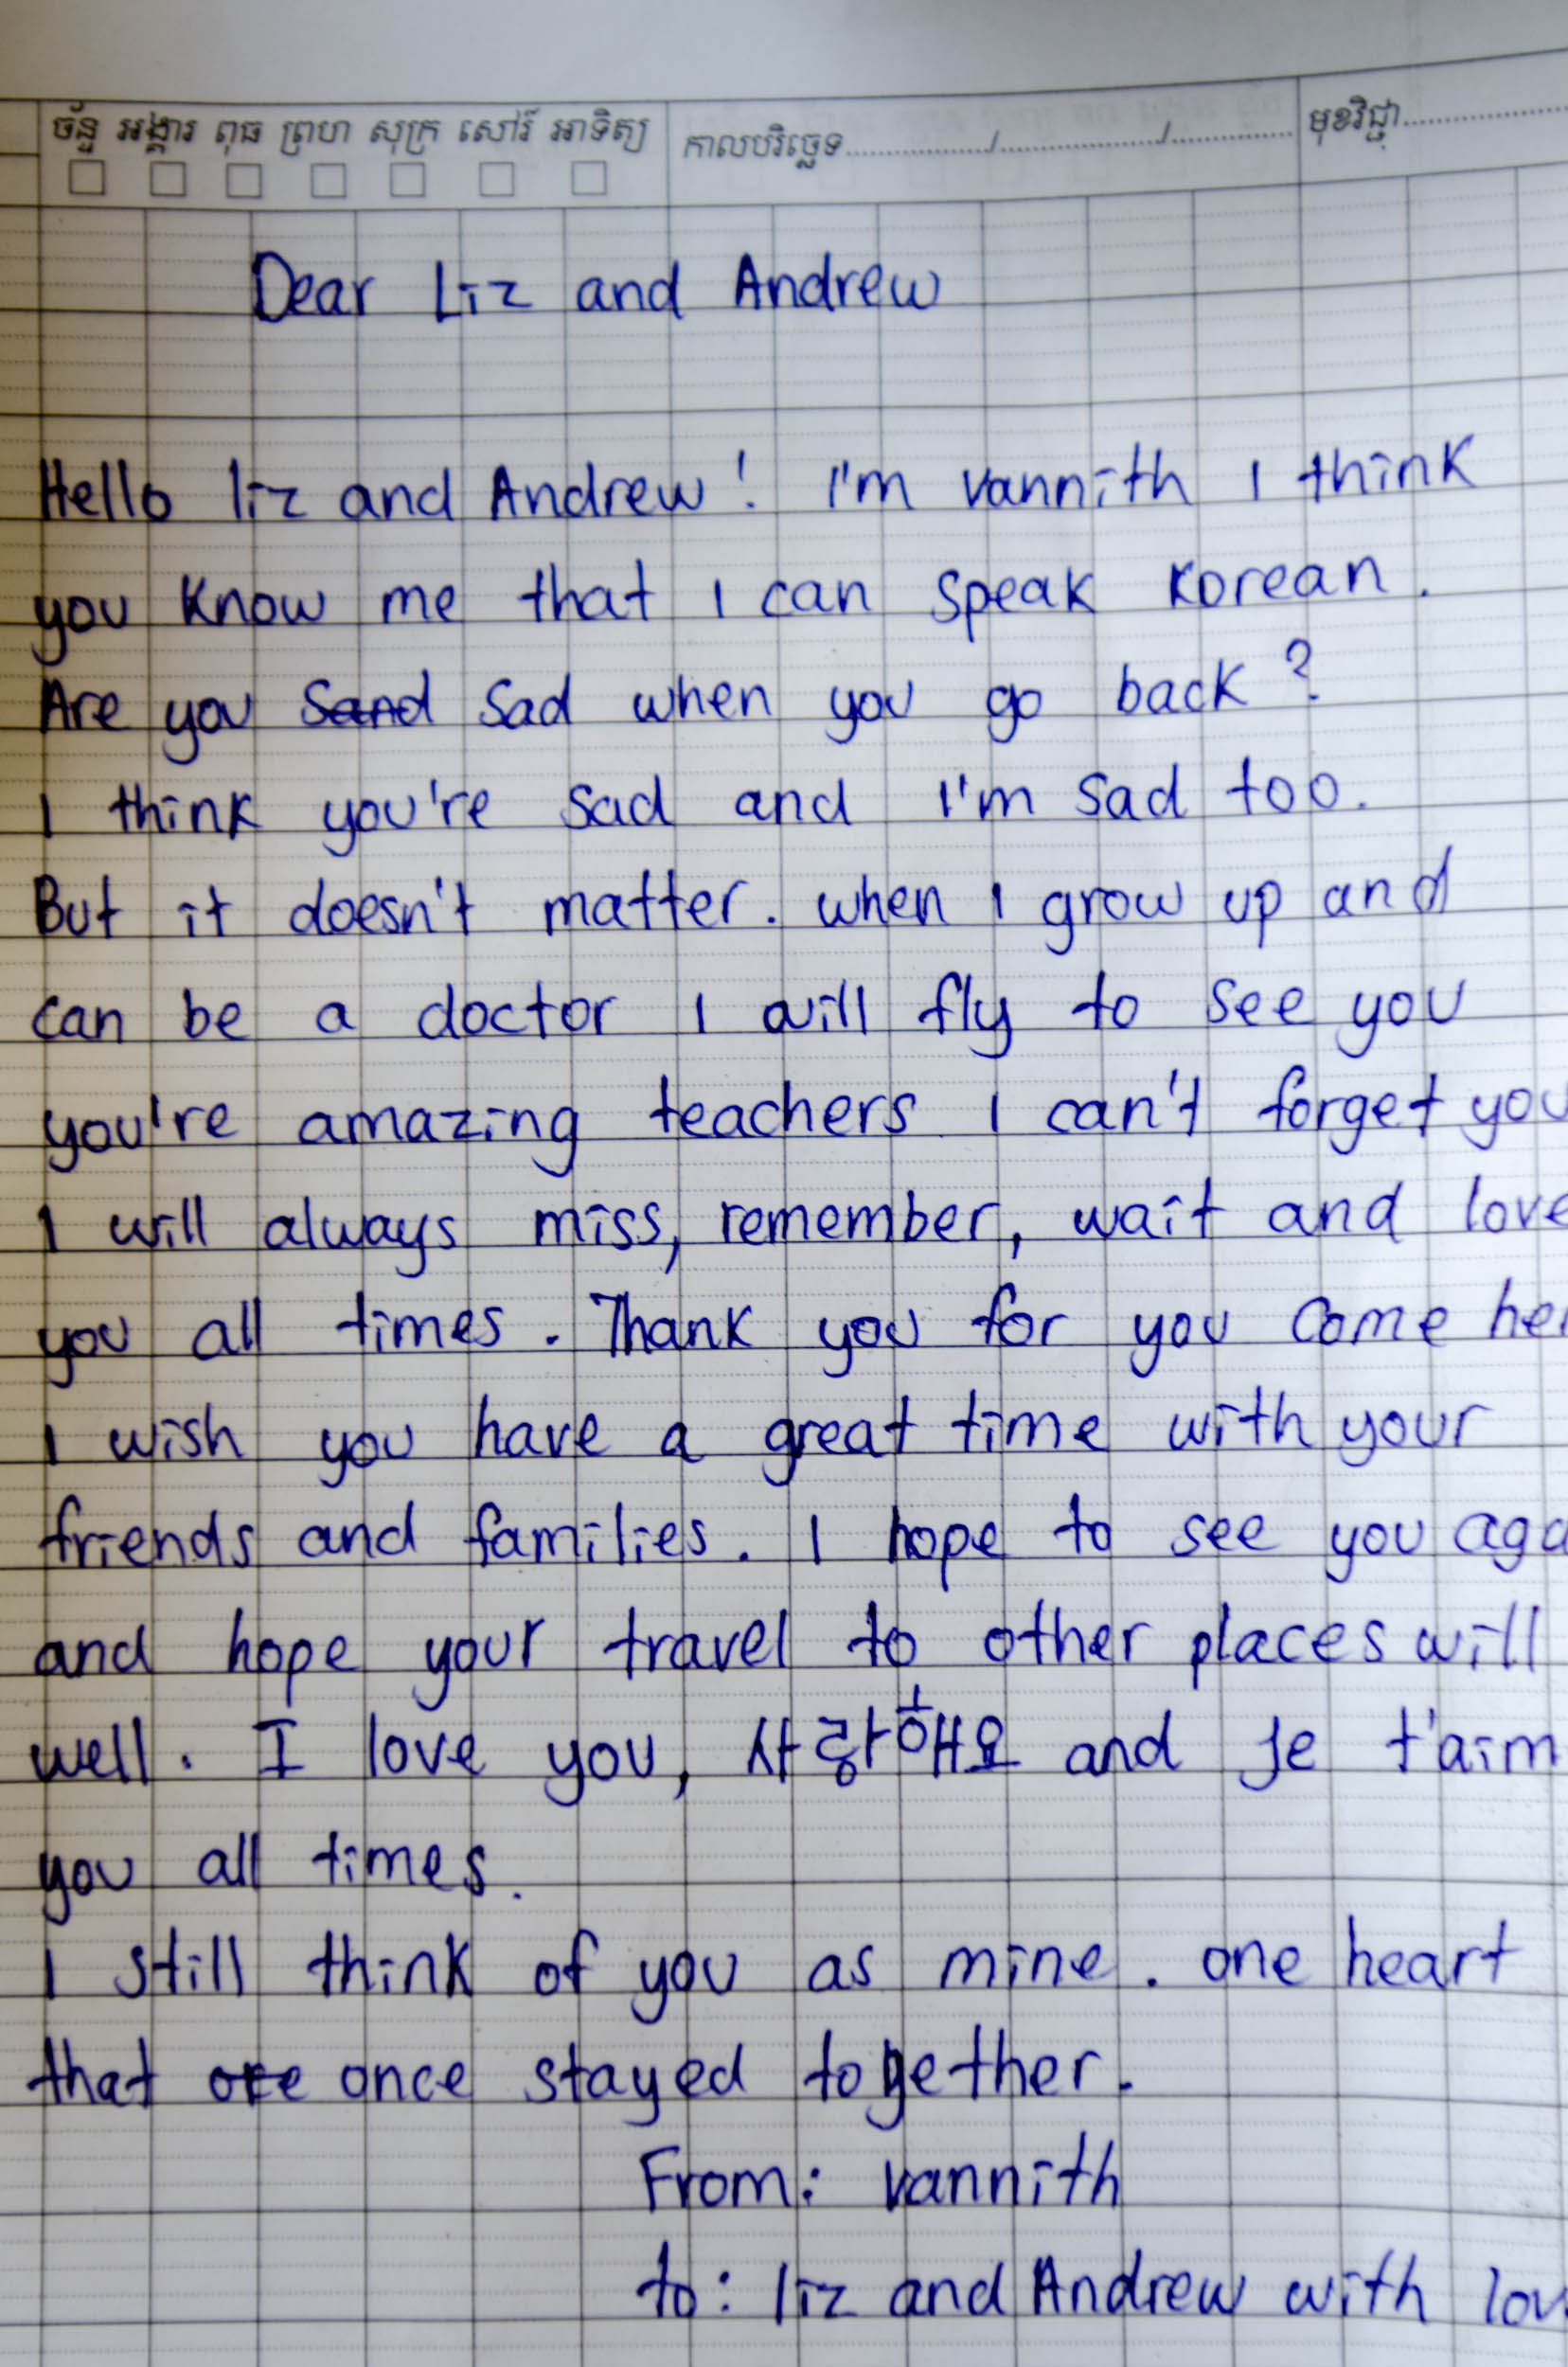 ច័ន្ទ អង្គារ ពុធ ព្រហ សុក្រ សៅរ៍ អាទិត្យ
កាលបរិច្ឆេទ............/............/............
មុខវិជ្ជា............
Dear Liz and Andrew
Hello liz and Andrew! I'm vannith I think
you know me that I can speak korean.
Are you sand sad when you go back?
I think you're sad and I'm sad too.
But it doesn't matter. when I grow up and
can be a doctor I will fly to see you
you're amazing teachers I can't forget you
I will always miss, remember, wait and love
you all times. Thank you for you come her
I wish you have a great time with your
friends and families. I hope to see you aga
and hope your travel to other places will
well. I love you, 사랑해요 and Je t'aim
you all times.
I still think of you as mine. one heart
that once stayed together.
From: vannith
to: liz and Andrew with lov